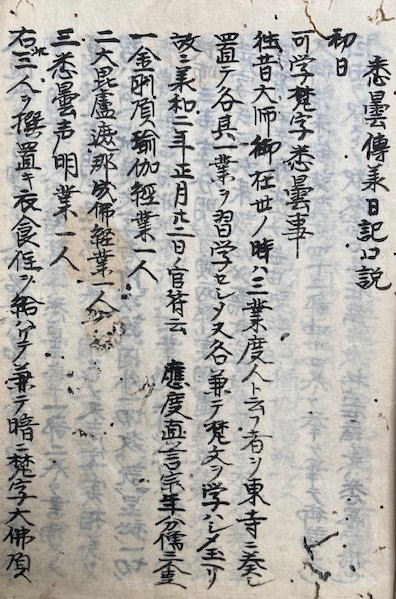 悉曇傳来日記口説
初日
可学梵字悉曇事
往昔大師御在世ノ時ハ三業度人ト云フ者ヲ東寺ニ奏シ
置テ各具一業ヲ習学セシメ又各兼テ梵文ヲ学ハシメ玉ヘリ
故ニ羙和二年正月廿二日ノ官符云 應度真言宗年分僧三人
一金剛頂瑜伽経業一人
二大毘盧遮那成佛経業一人
三悉曇声明業一人
右三人ヲ撰置キ衣食住ヲ給ハリテ兼テ暗ニ梵字大佛頂